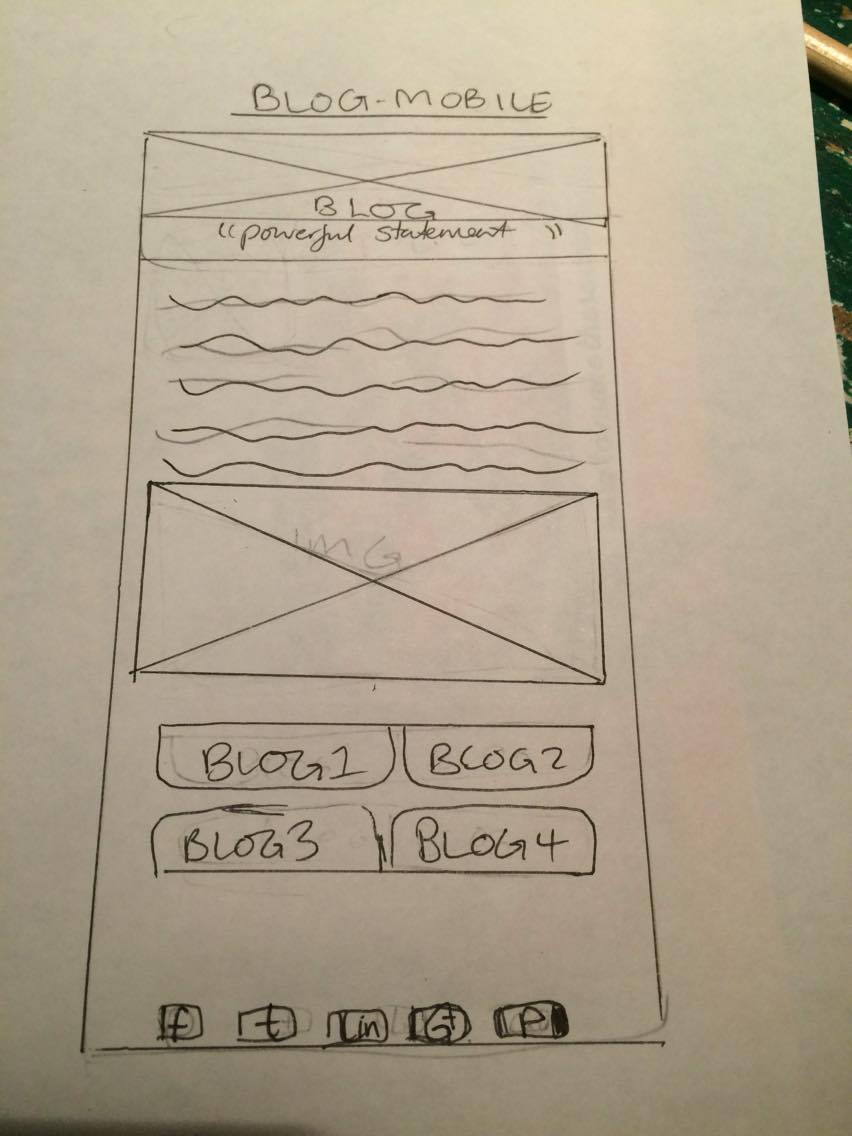 BLOG-MOBILE
BLOG
"powerful statement"
IMG
BLOG1 BLOG2
BLOG3 BLOG4
f t in G+ P